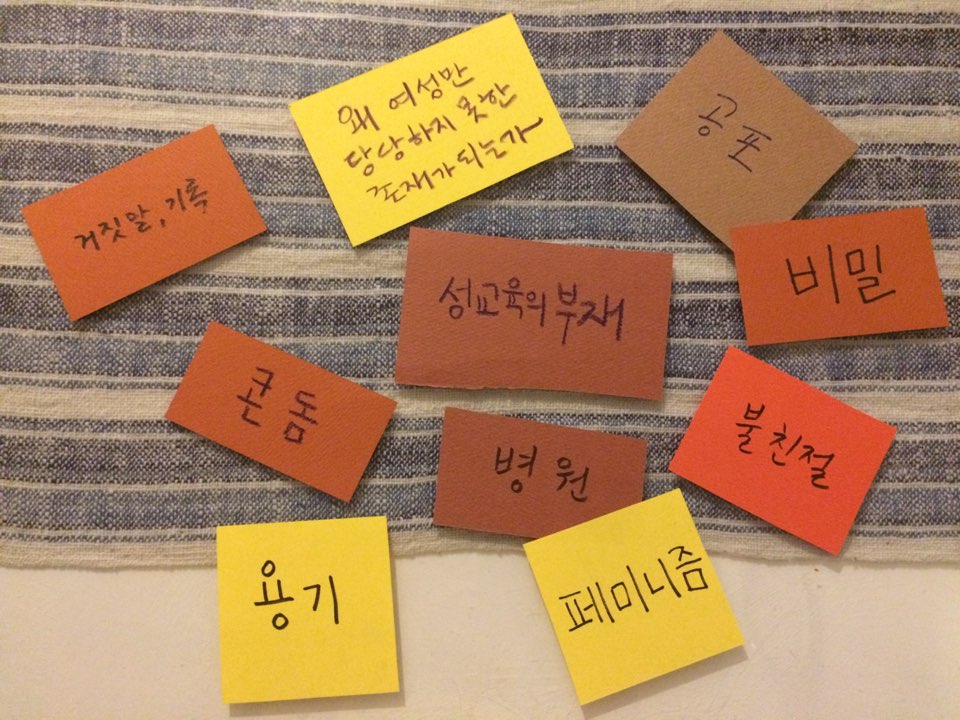 왜 여성만
당당하지 못한
존재가 되는가
공포
거짓말, 기록
비밀
성교육의 부재
콘돔
불친절
병원
용기
페미니즘